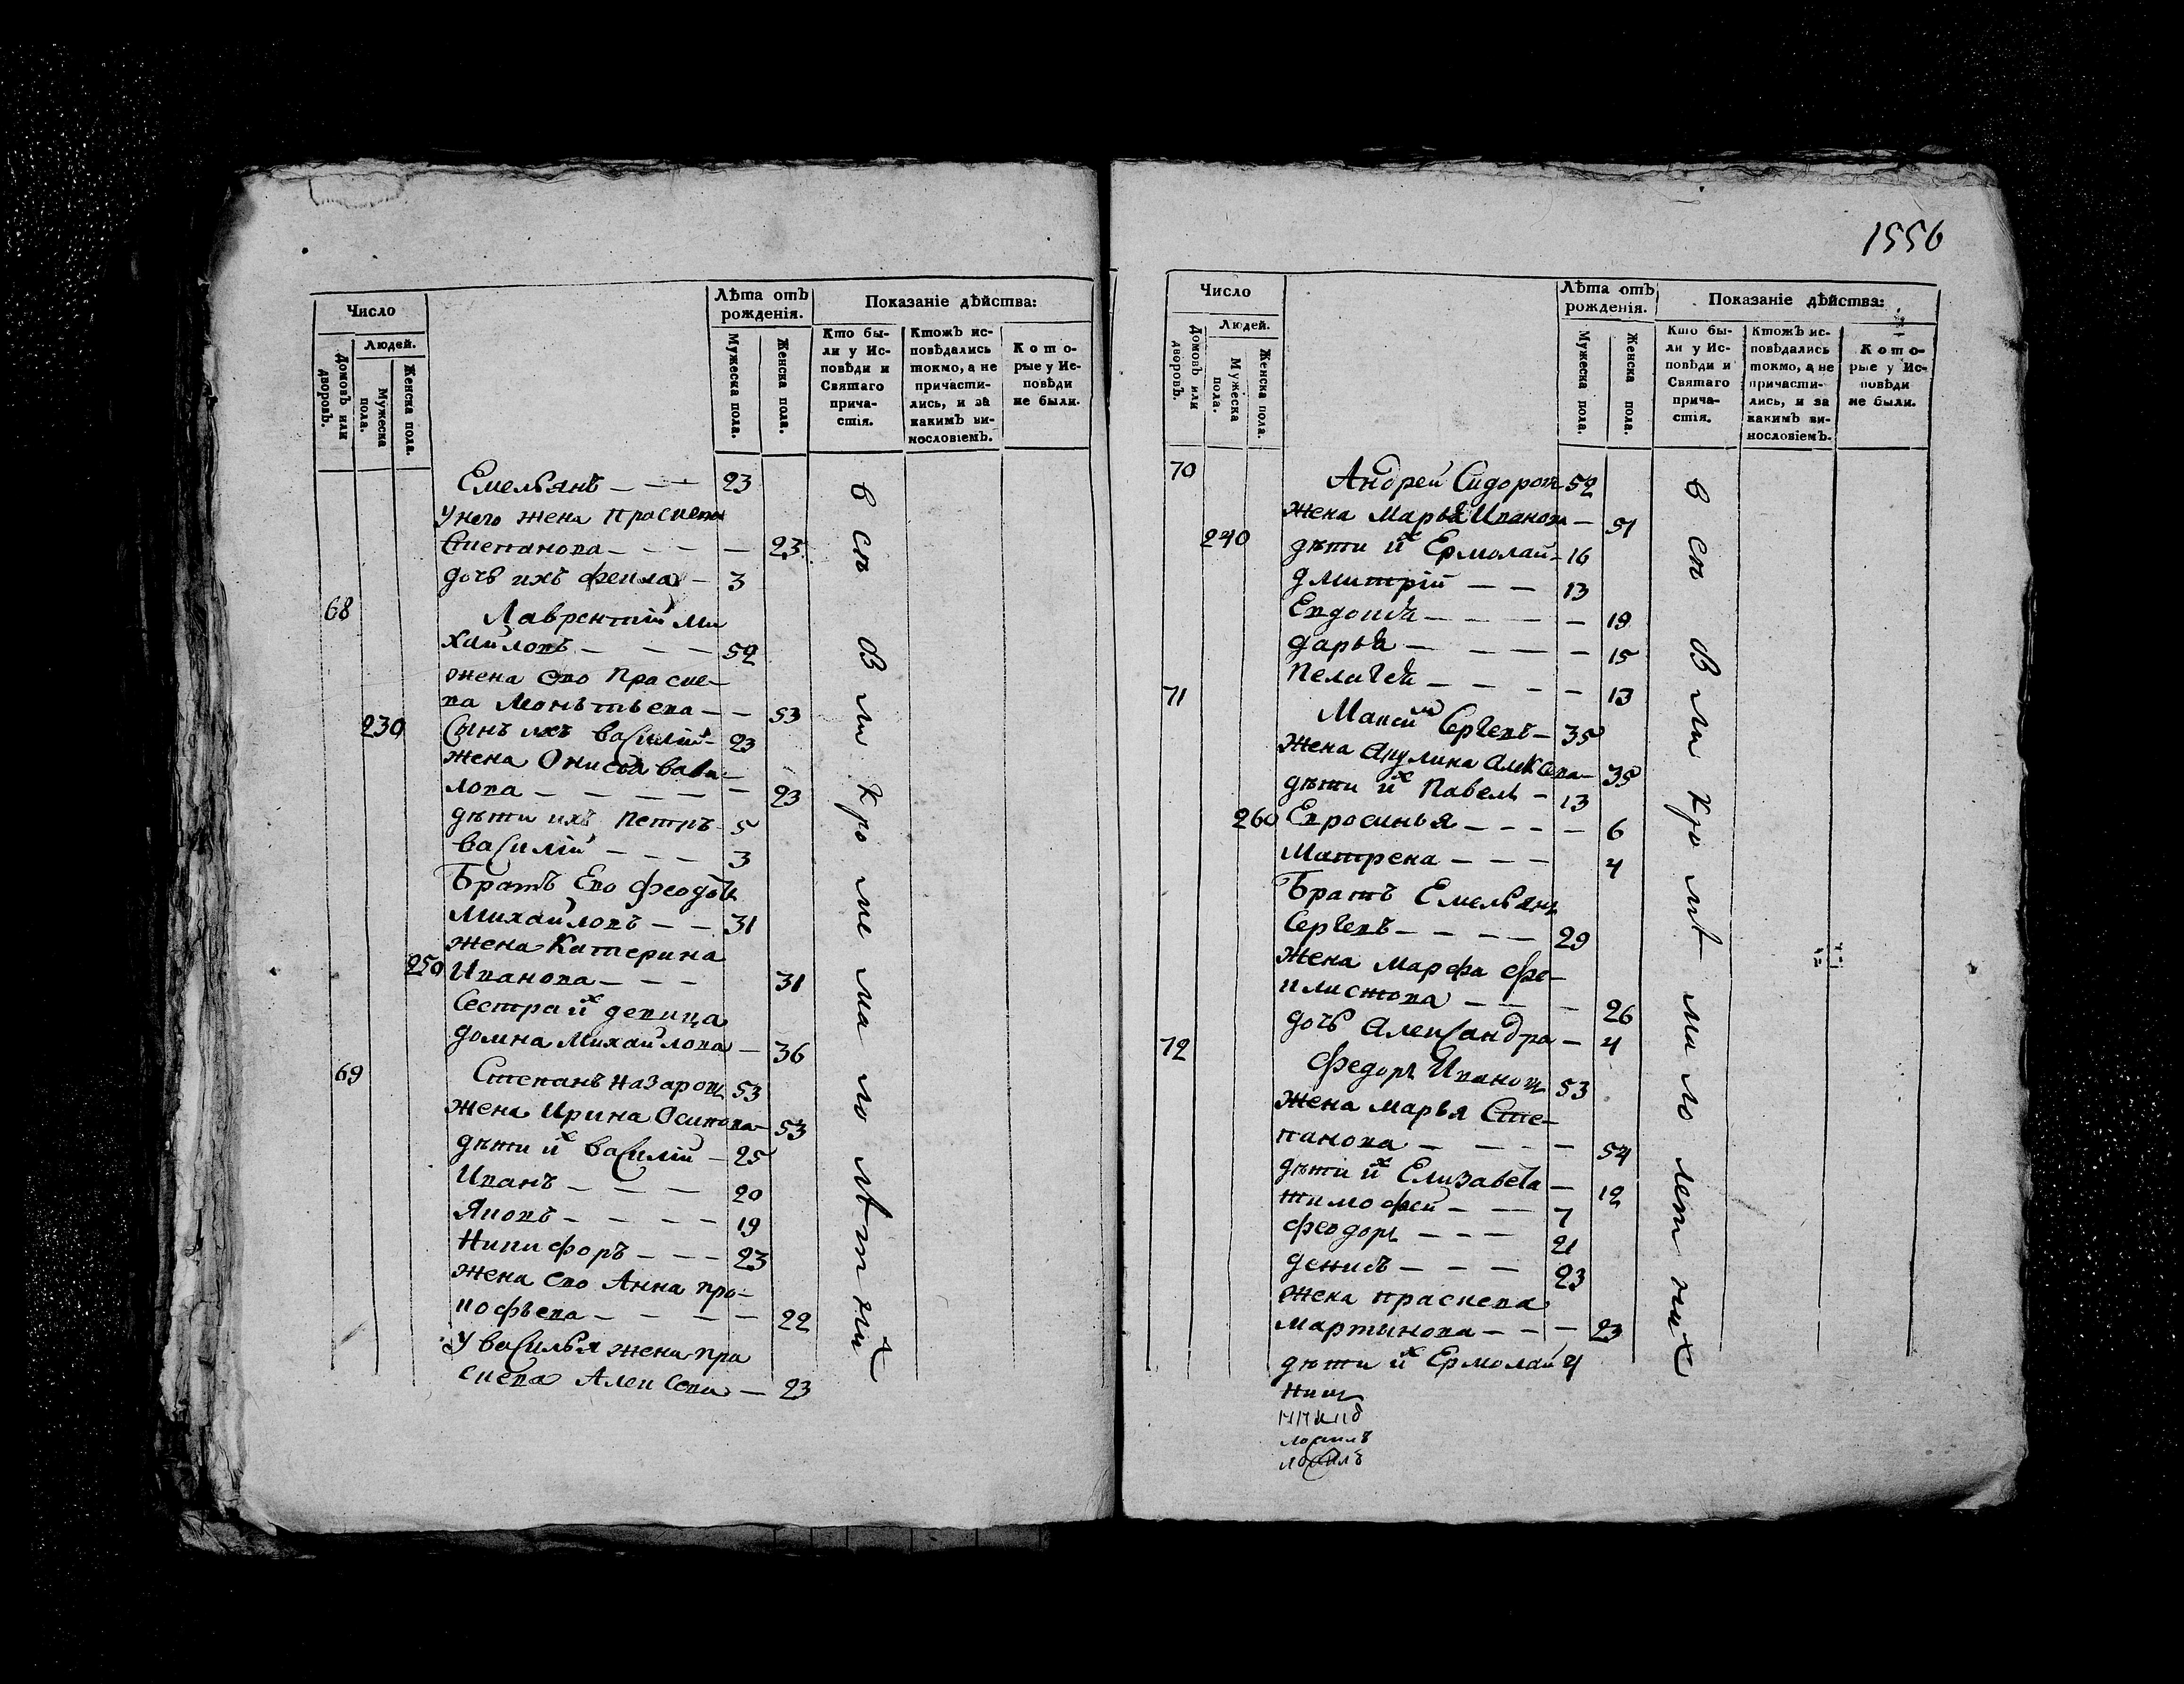 Число
Людей.
Домовъ или дворовъ.
Мужеска пола.
Женска пола.
Лѣта отъ рожденія.
Мужеска пола.
Женска пола.
Показаніе дѣйства:
Кто бы-
ли у Ис-
повѣди и
Святаго
прича-
стія.
Ктожъ ис-
повѣдались
токмо, а не
причасти-
лись, и за
какимъ ви-
нословіемъ.
Кото-
рые у Ис-
повѣди
не были.
Емельянъ — — — 23
У него жена Праскева
Степанова — — — — 23
дочь ихъ Фекла — 3
68 Лаврентій Ми
хайловъ — — — 52
жена его Праске-
ва — — 53
230 Сынъ ихъ Василій — 23
жена Онисья Вави-
лова — — — — — 23
дѣти ихъ Петръ — 5
Василій — — — 3
Братъ Его Феодоръ
Михайловъ — — 31
жена Катерина
250 Иванова — — — 31
Сестра их девица
Домна Михайлова — 36
69 Степанъ Назаровъ 53
жена Ирина Осипова — 53
дѣти их Василій — 25
Иванъ — — — 20
Яковъ — — — — 19
Никифоръ — — — 23
жена его Анна Про-
кофьева — — — — 22
У Василья жена Пра
скева Алексева — 23
всѣ были кроме малолѣтних
1556
Число
Людей.
Домовъ или дворовъ.
Мужеска пола.
Женска пола.
Лѣта отъ рожденія.
Мужеска пола.
Женска пола.
Показаніе дѣйства:
Кто бы-
ли у Ис-
повѣди и
Святаго
прича-
стія.
Ктожъ ис-
повѣдались
токмо, а не
причасти-
лись, и за
какимъ ви-
нословіемъ.
Кото-
рые у Ис-
повѣди
не были.
70 Андрей Сидоровъ 52
жена Марья Иванова — 51
240 дѣти их Ермолай — 16
Дмитрій — — 13
Евдокія — — — — 19
Дарья — — — — 15
Пелагея — — — — 13
71 Максим Сергевъ — 35
жена Акулина Алексева — 35
дѣти их Павелъ — 13
260 Евросинья — — — — 6
Матрена — — — 4
Братъ Емельянъ
Сергевъ — — — — 29
жена Марфа Фе-
илистова — — — 26
дочь Александра — 4
72 Федоръ Ивановъ 53
жена Марья Сте-
панова — — — — 54
дѣти их Елизавета — 12
Тимофей — — — 7
Феодоръ — — — 21
Денисъ — — — 23
жена Праскева
Мартынова — — — 23
дѣти их Ермолай 4